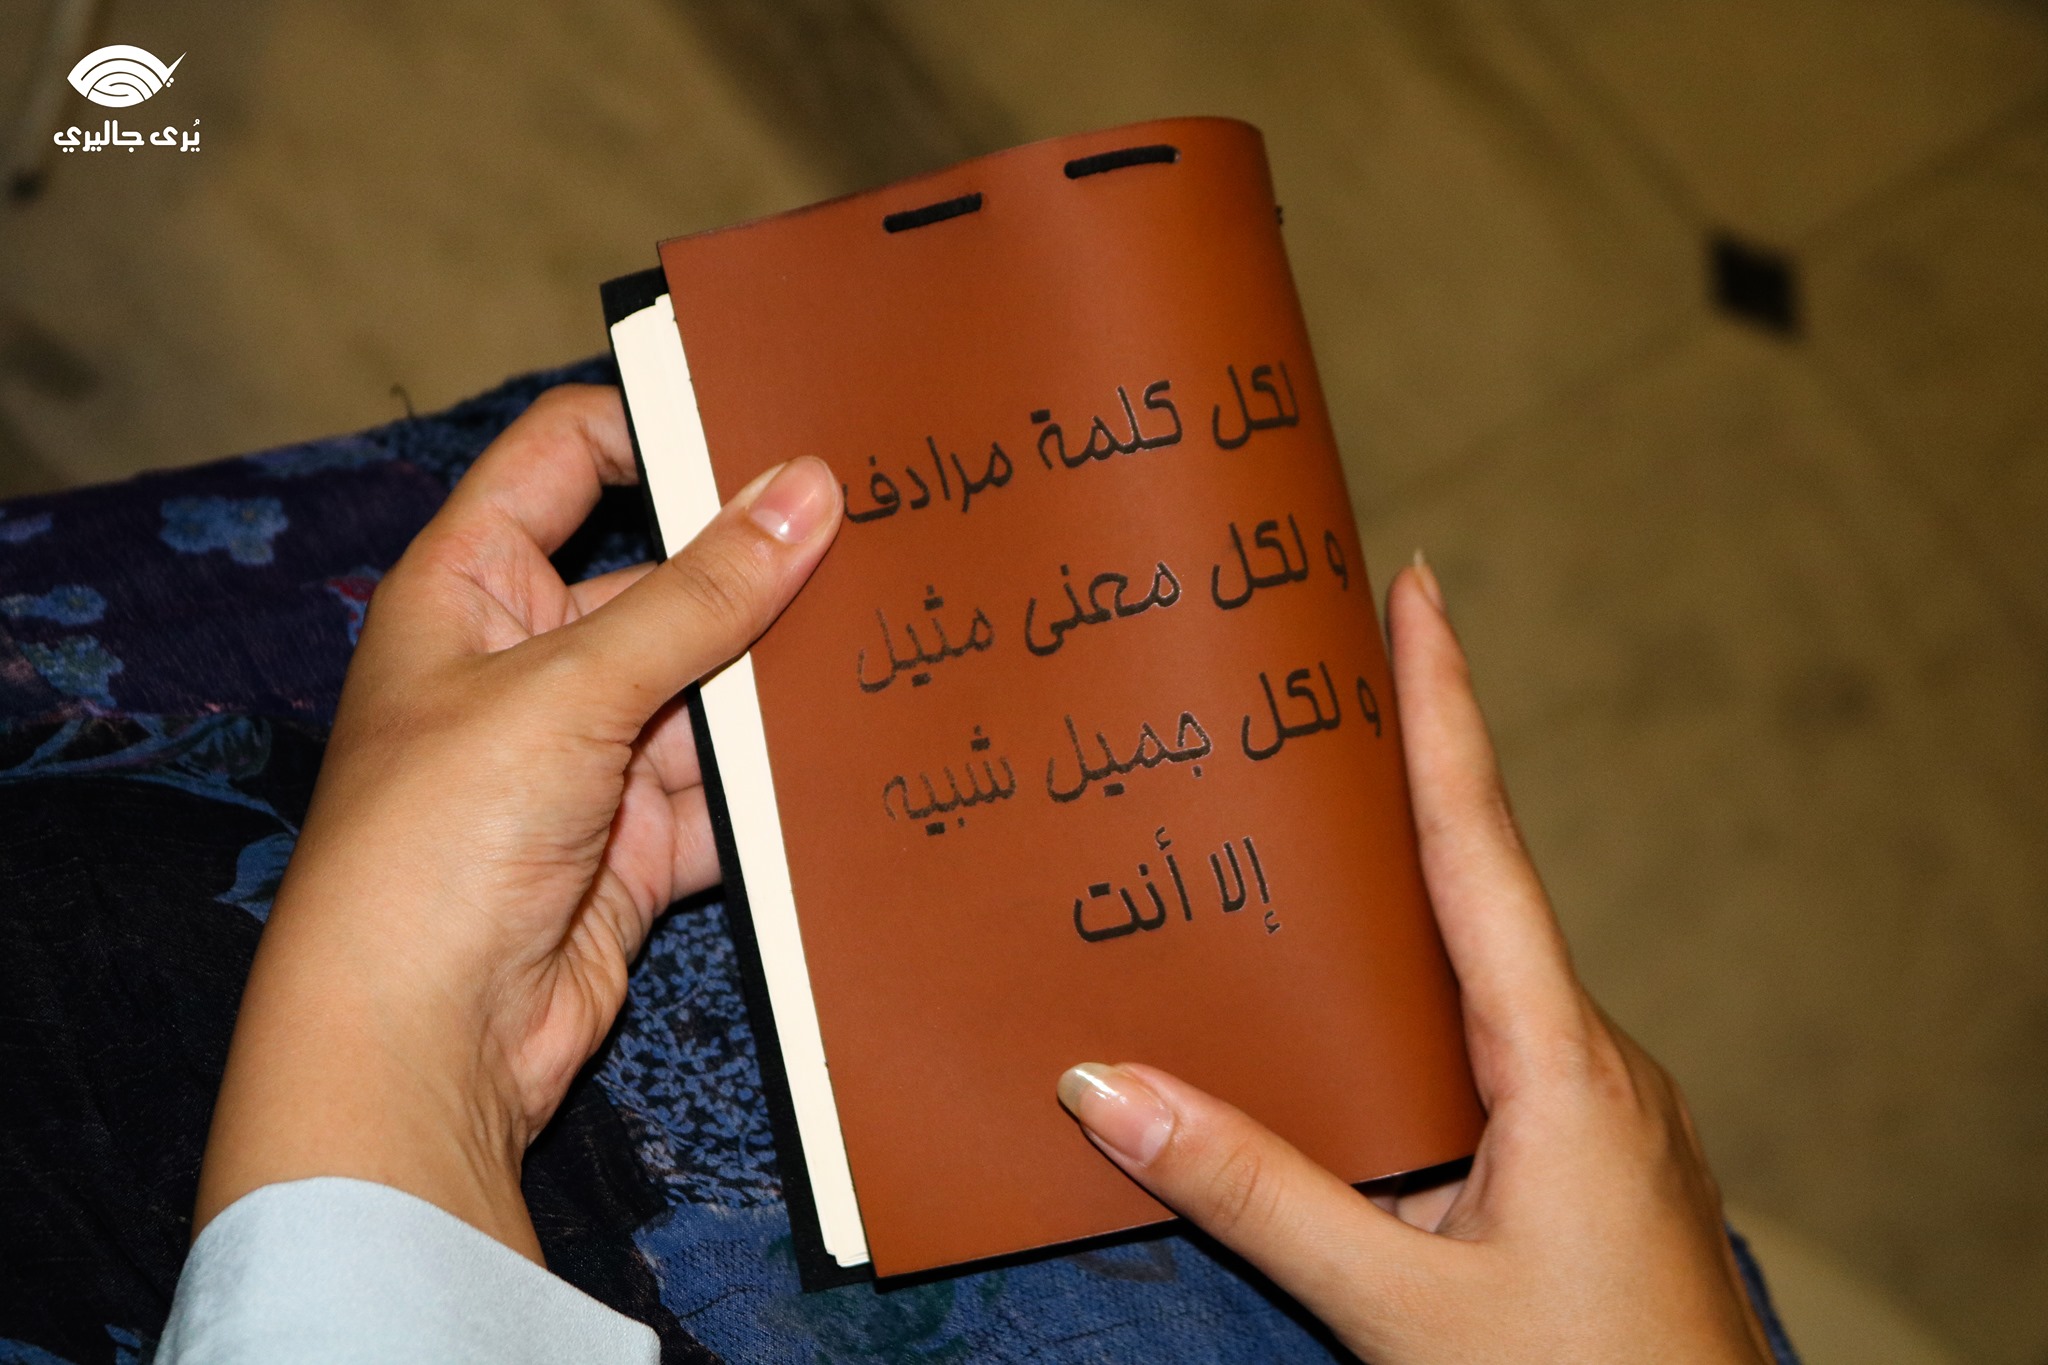 يُرى جاليري
لكل كلمة مرادف
و لكل معنى مثيل
و لكل جميل شبيه
إلا أنت